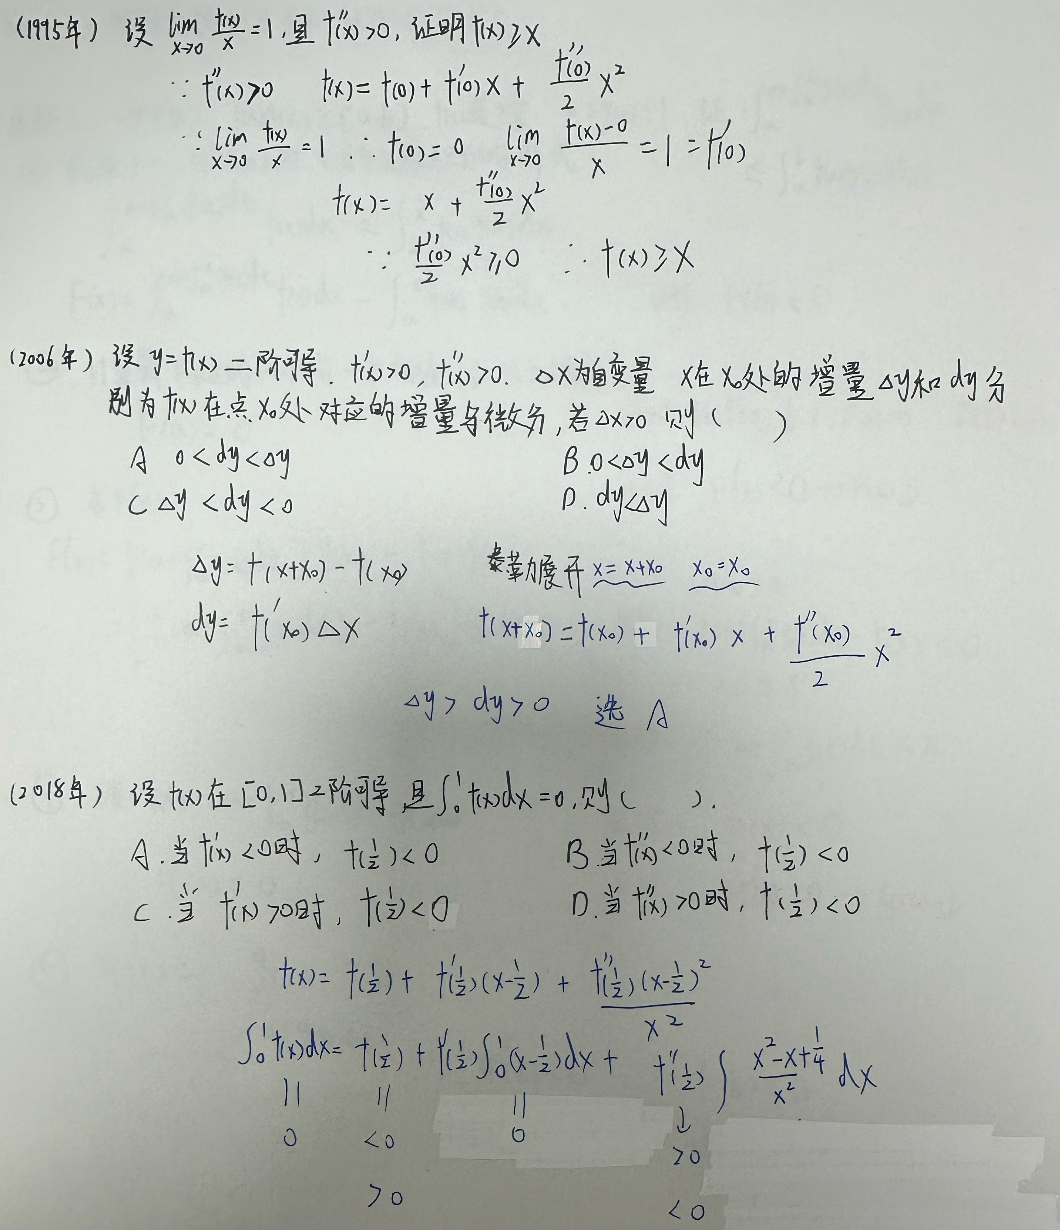 (1995年) 设 lim x→0 f(x)/x = 1, 且 f''(x)>0, 证明 f(x)≥x
∵ f''(x)>0 f(x)= f(0)+ f'(0)x + f''(0)/2 x²
∵ lim x→0 f(x)/x = 1 ∴ f(0)=0 lim x→0 (f(x)-0)/x = 1 = f'(0)
f(x)= x + f''(0)/2 x²
∵ f''(0)/2 x²≥0 ∴ f(x)≥x
(2006年) 设 y=f(x) 二阶可导. f'(x)>0, f''(x)>0. △x为自变量 x在x₀处的增量 △y和dy分
别为f(x)在点x₀处对应的增量与微分, 若△x>0 则( )
A 0<dy<△y B. 0<△y<dy
C △y<dy<0 D. dy<△y
△y= f(x+x₀)-f(x₀) 泰勒展开 x=x+x₀ x₀=x₀
dy= f'(x₀)△x f(x+x₀)=f(x₀)+ f'(x₀)x + f''(x₀)/2 x²
△y> dy>0 选 A
(2018年) 设f(x)在[0,1]2阶可导 且∫₀¹f(x)dx=0, 则( ).
A. 当f'(x)<0时, f(1/2)<0 B. 当f''(x)<0时, f(1/2)<0
C. 当 f'(x)>0时, f(1/2)<0 D. 当f''(x)>0时, f(1/2)<0
f(x)= f(1/2)+ f'(1/2)(x-1/2) + f''(1/2)(x-1/2)²/x²
∫₀¹f(x)dx= f(1/2)+f'(1/2)∫₀¹(x-1/2)dx+ f''(1/2)∫(x²-x+1/4)/x² dx
|| || || ↓
0 <0 0 >0
>0 <0